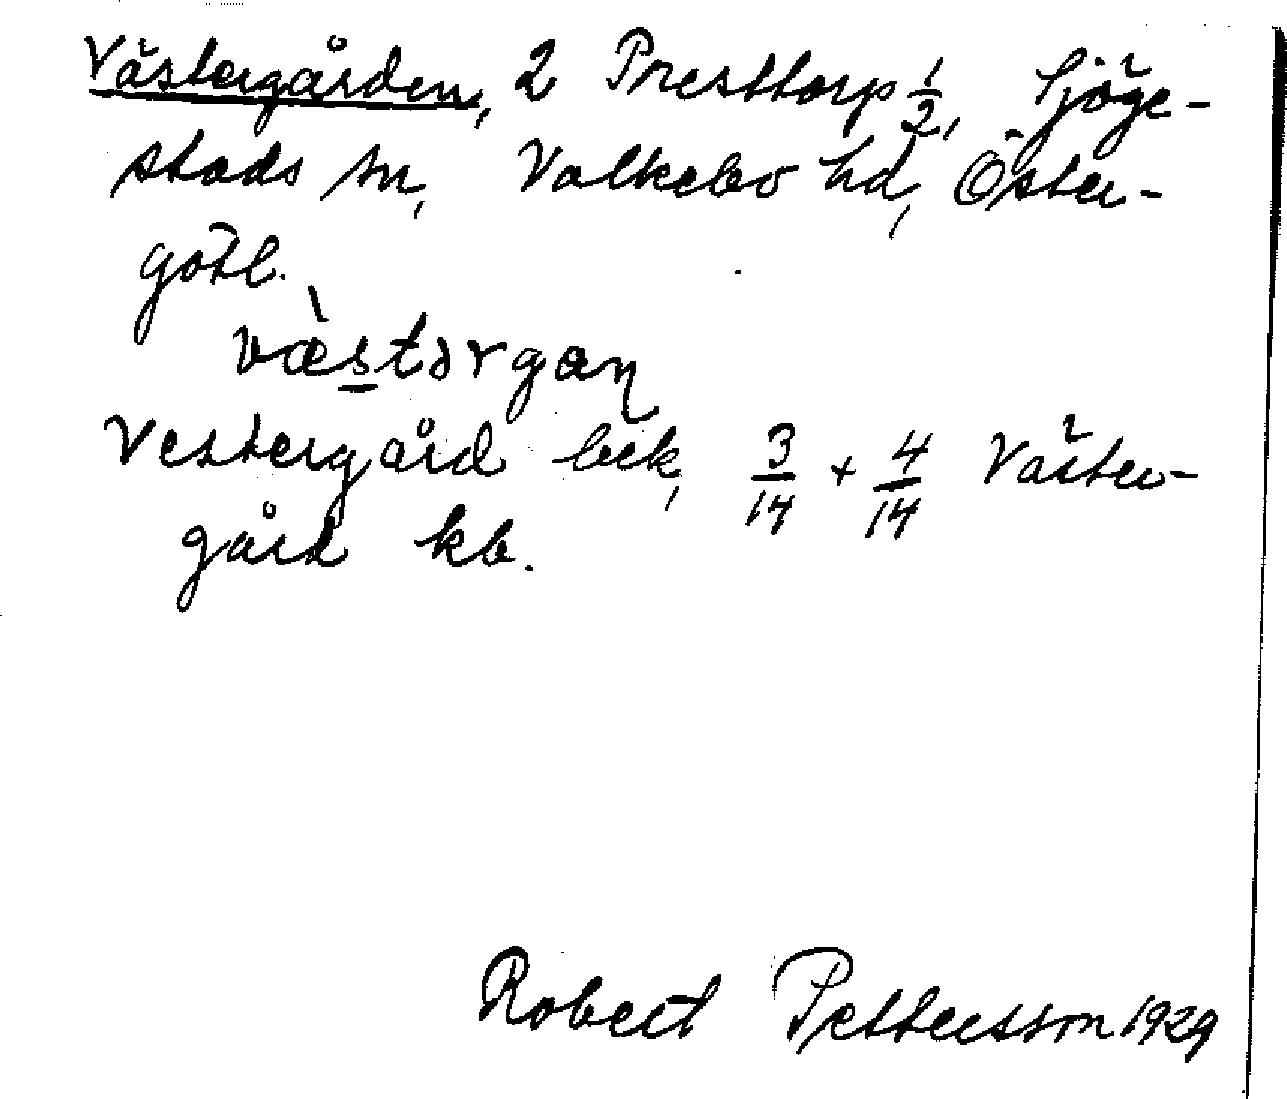 Västergården, 2 Presttorp 1/2, Sjöge-
stads sn, Valkebo hd, Öster-
götl.
væ̀stərgaɳ
Vestergård bek, 3/14 + 4/14 Väster-
gård kb.
Robert Pettersson 1929